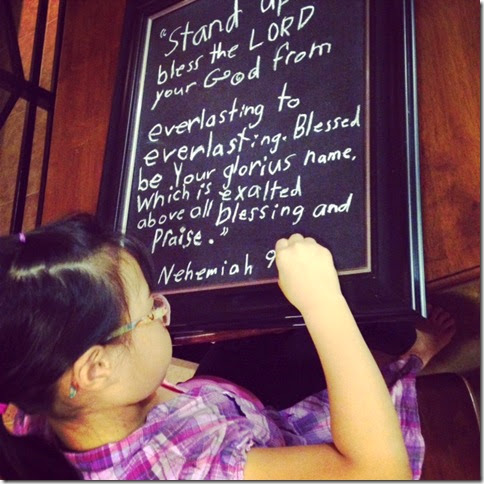 "Stand up
bless the LORD
your Good from
everlasting to
everlasting. Blessed
be Your glorius name,
Which is exalted
above all blessing and
Praise."
Nehemiah 9